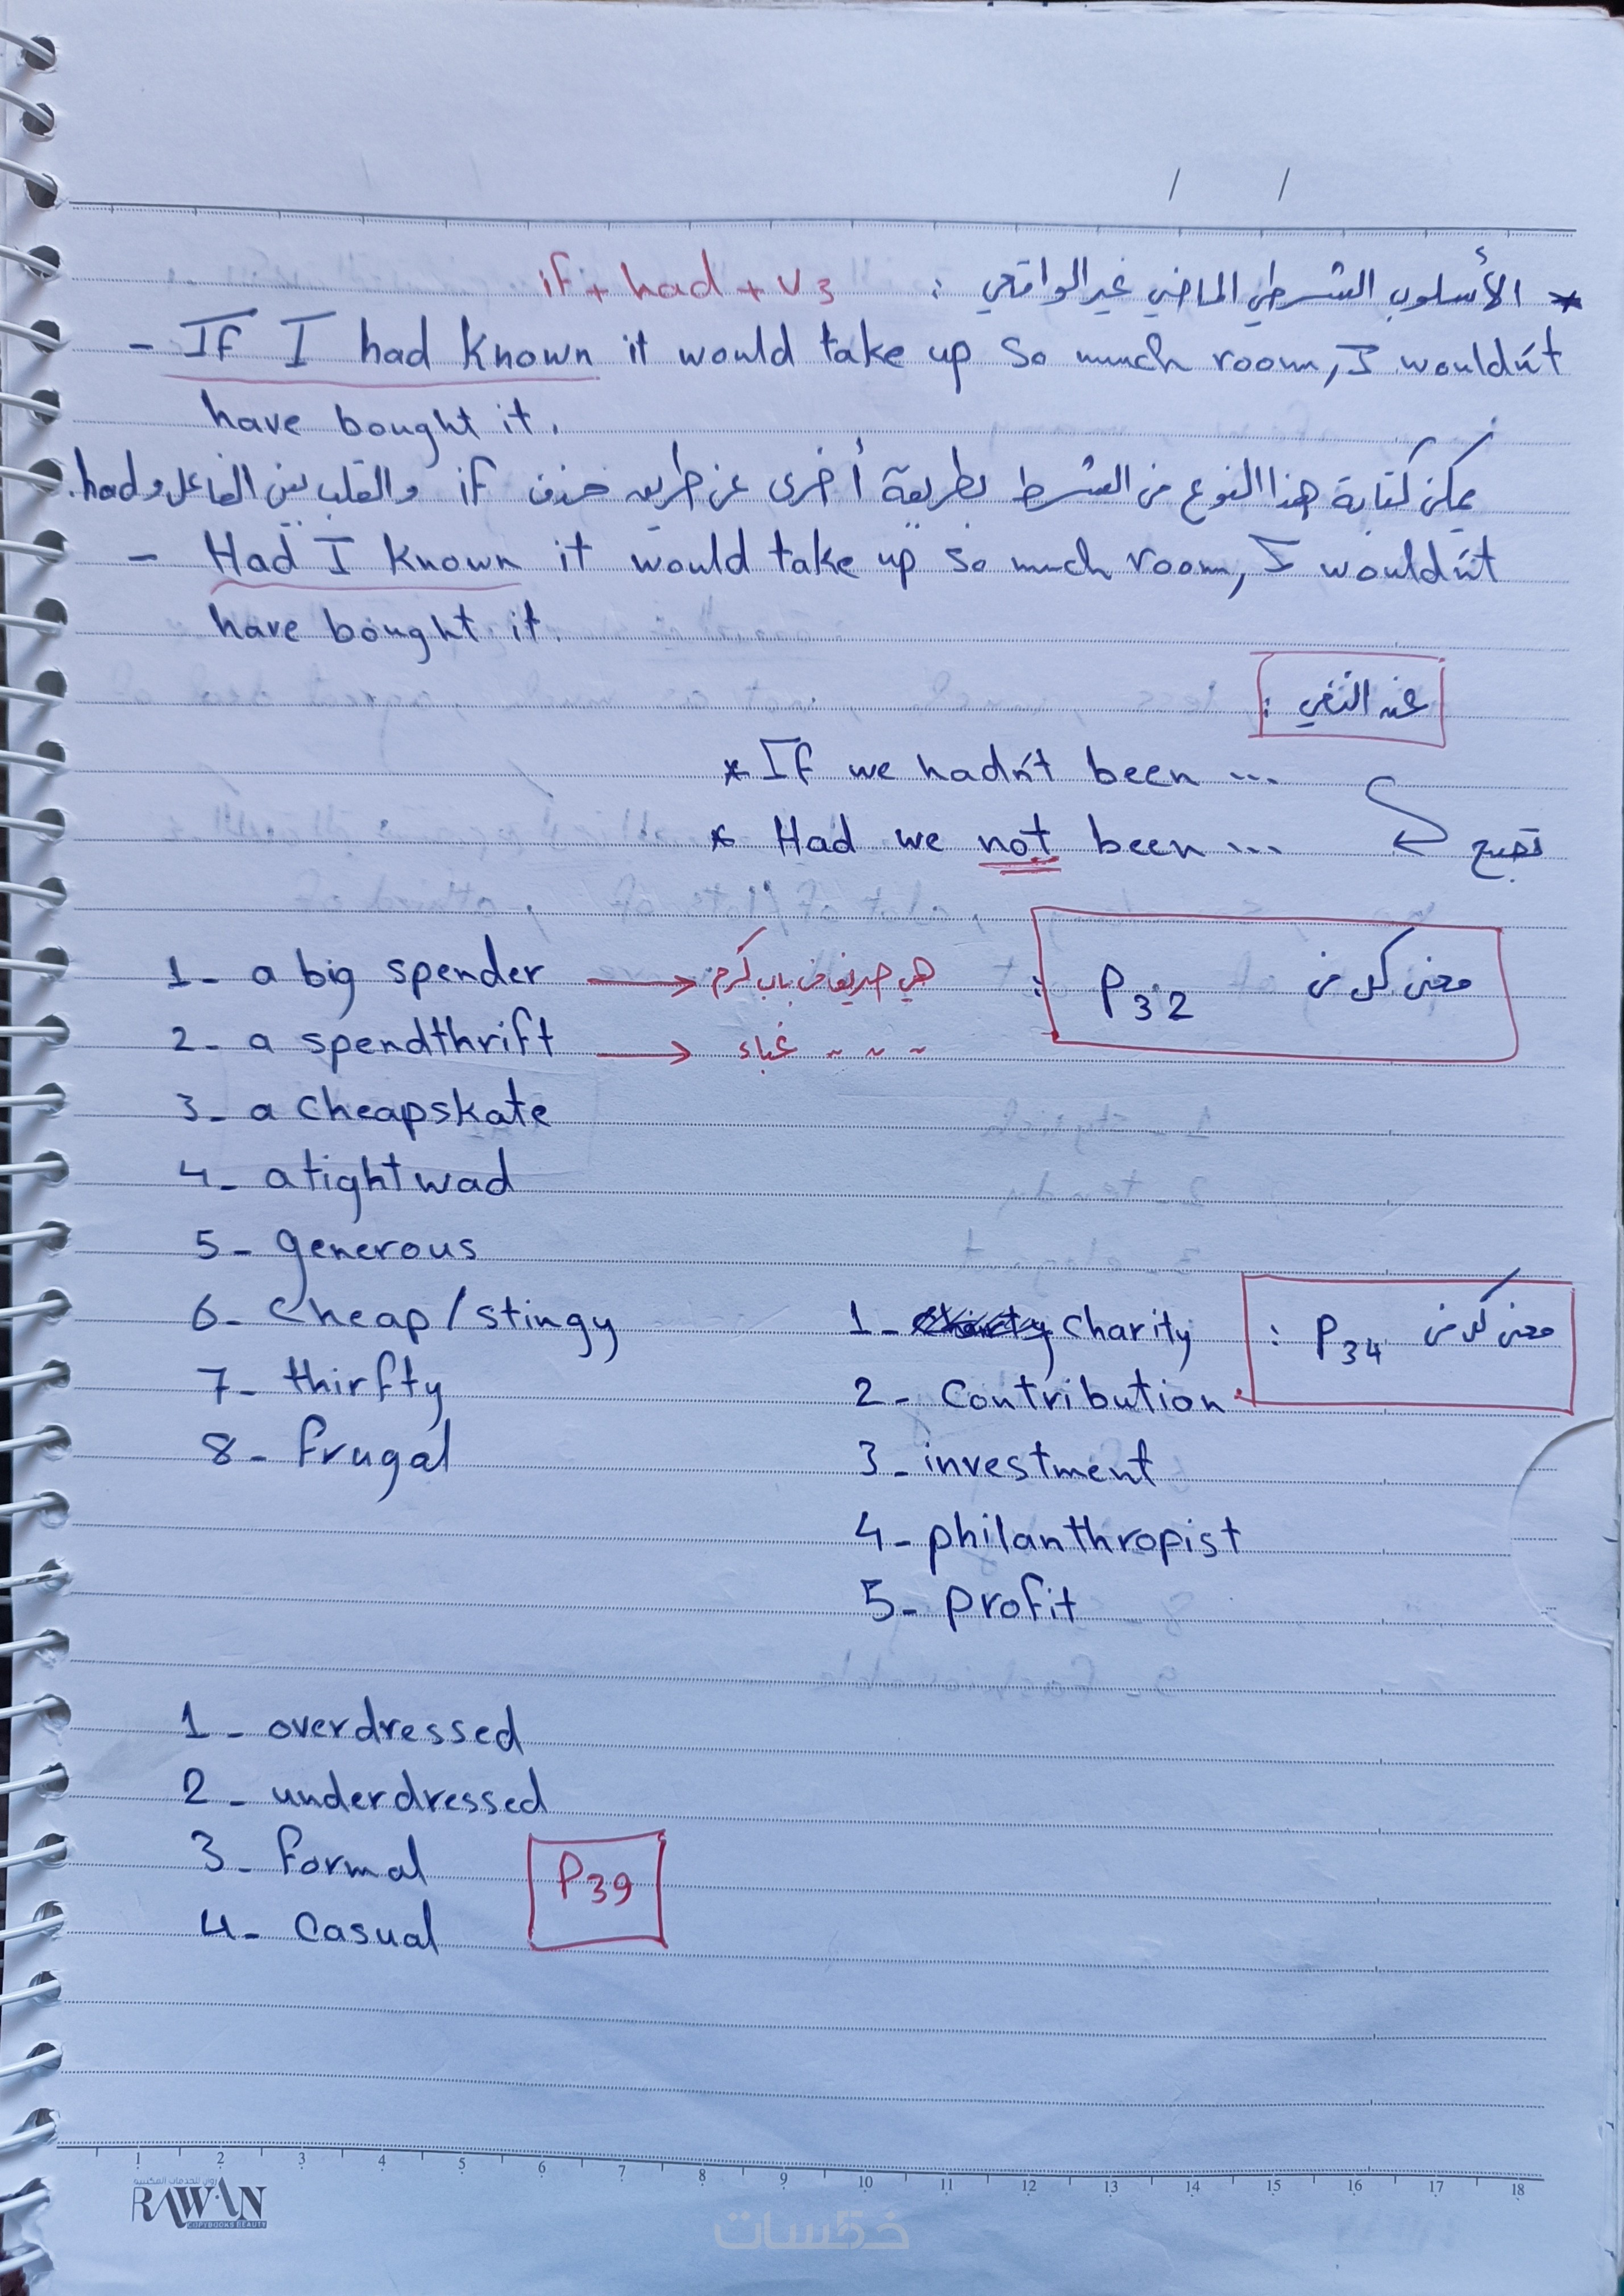 * الأسلوب الشرطي الماضي غير الواقعي : if + had + v3
- If I had known it would take up so much room, I wouldn't
have bought it.
يمكن كتابة هذا النوع من الشرط بطريقة أخرى عن طريق حذف if والقلب بين الفاعل و had.
- Had I known it would take up so much room, I wouldn't
have bought it.
عند النفي :
* If we hadn't been ...
* Had we not been ... تصبح
معنى كل من P32 :
1- a big spender → هي صريف من باب كرم
2- a spendthrift → " " " غباء
3- a cheapskate
4- a tightwad
5- generous
6- cheap/stingy
7- thirfty
8- frugal
معنى كل من P34 :
1- charity
2- contribution
3- investment
4- philanthropist
5- profit
1- overdressed
2- underdressed
3- formal
4- casual
P39
1 2 3 4 5 6 7 8 9 10 11 12 13 14 15 16 17 18
روان للخدمات المكتبية
RAWAN
COPYBOOKS BEAUTY
خمسات